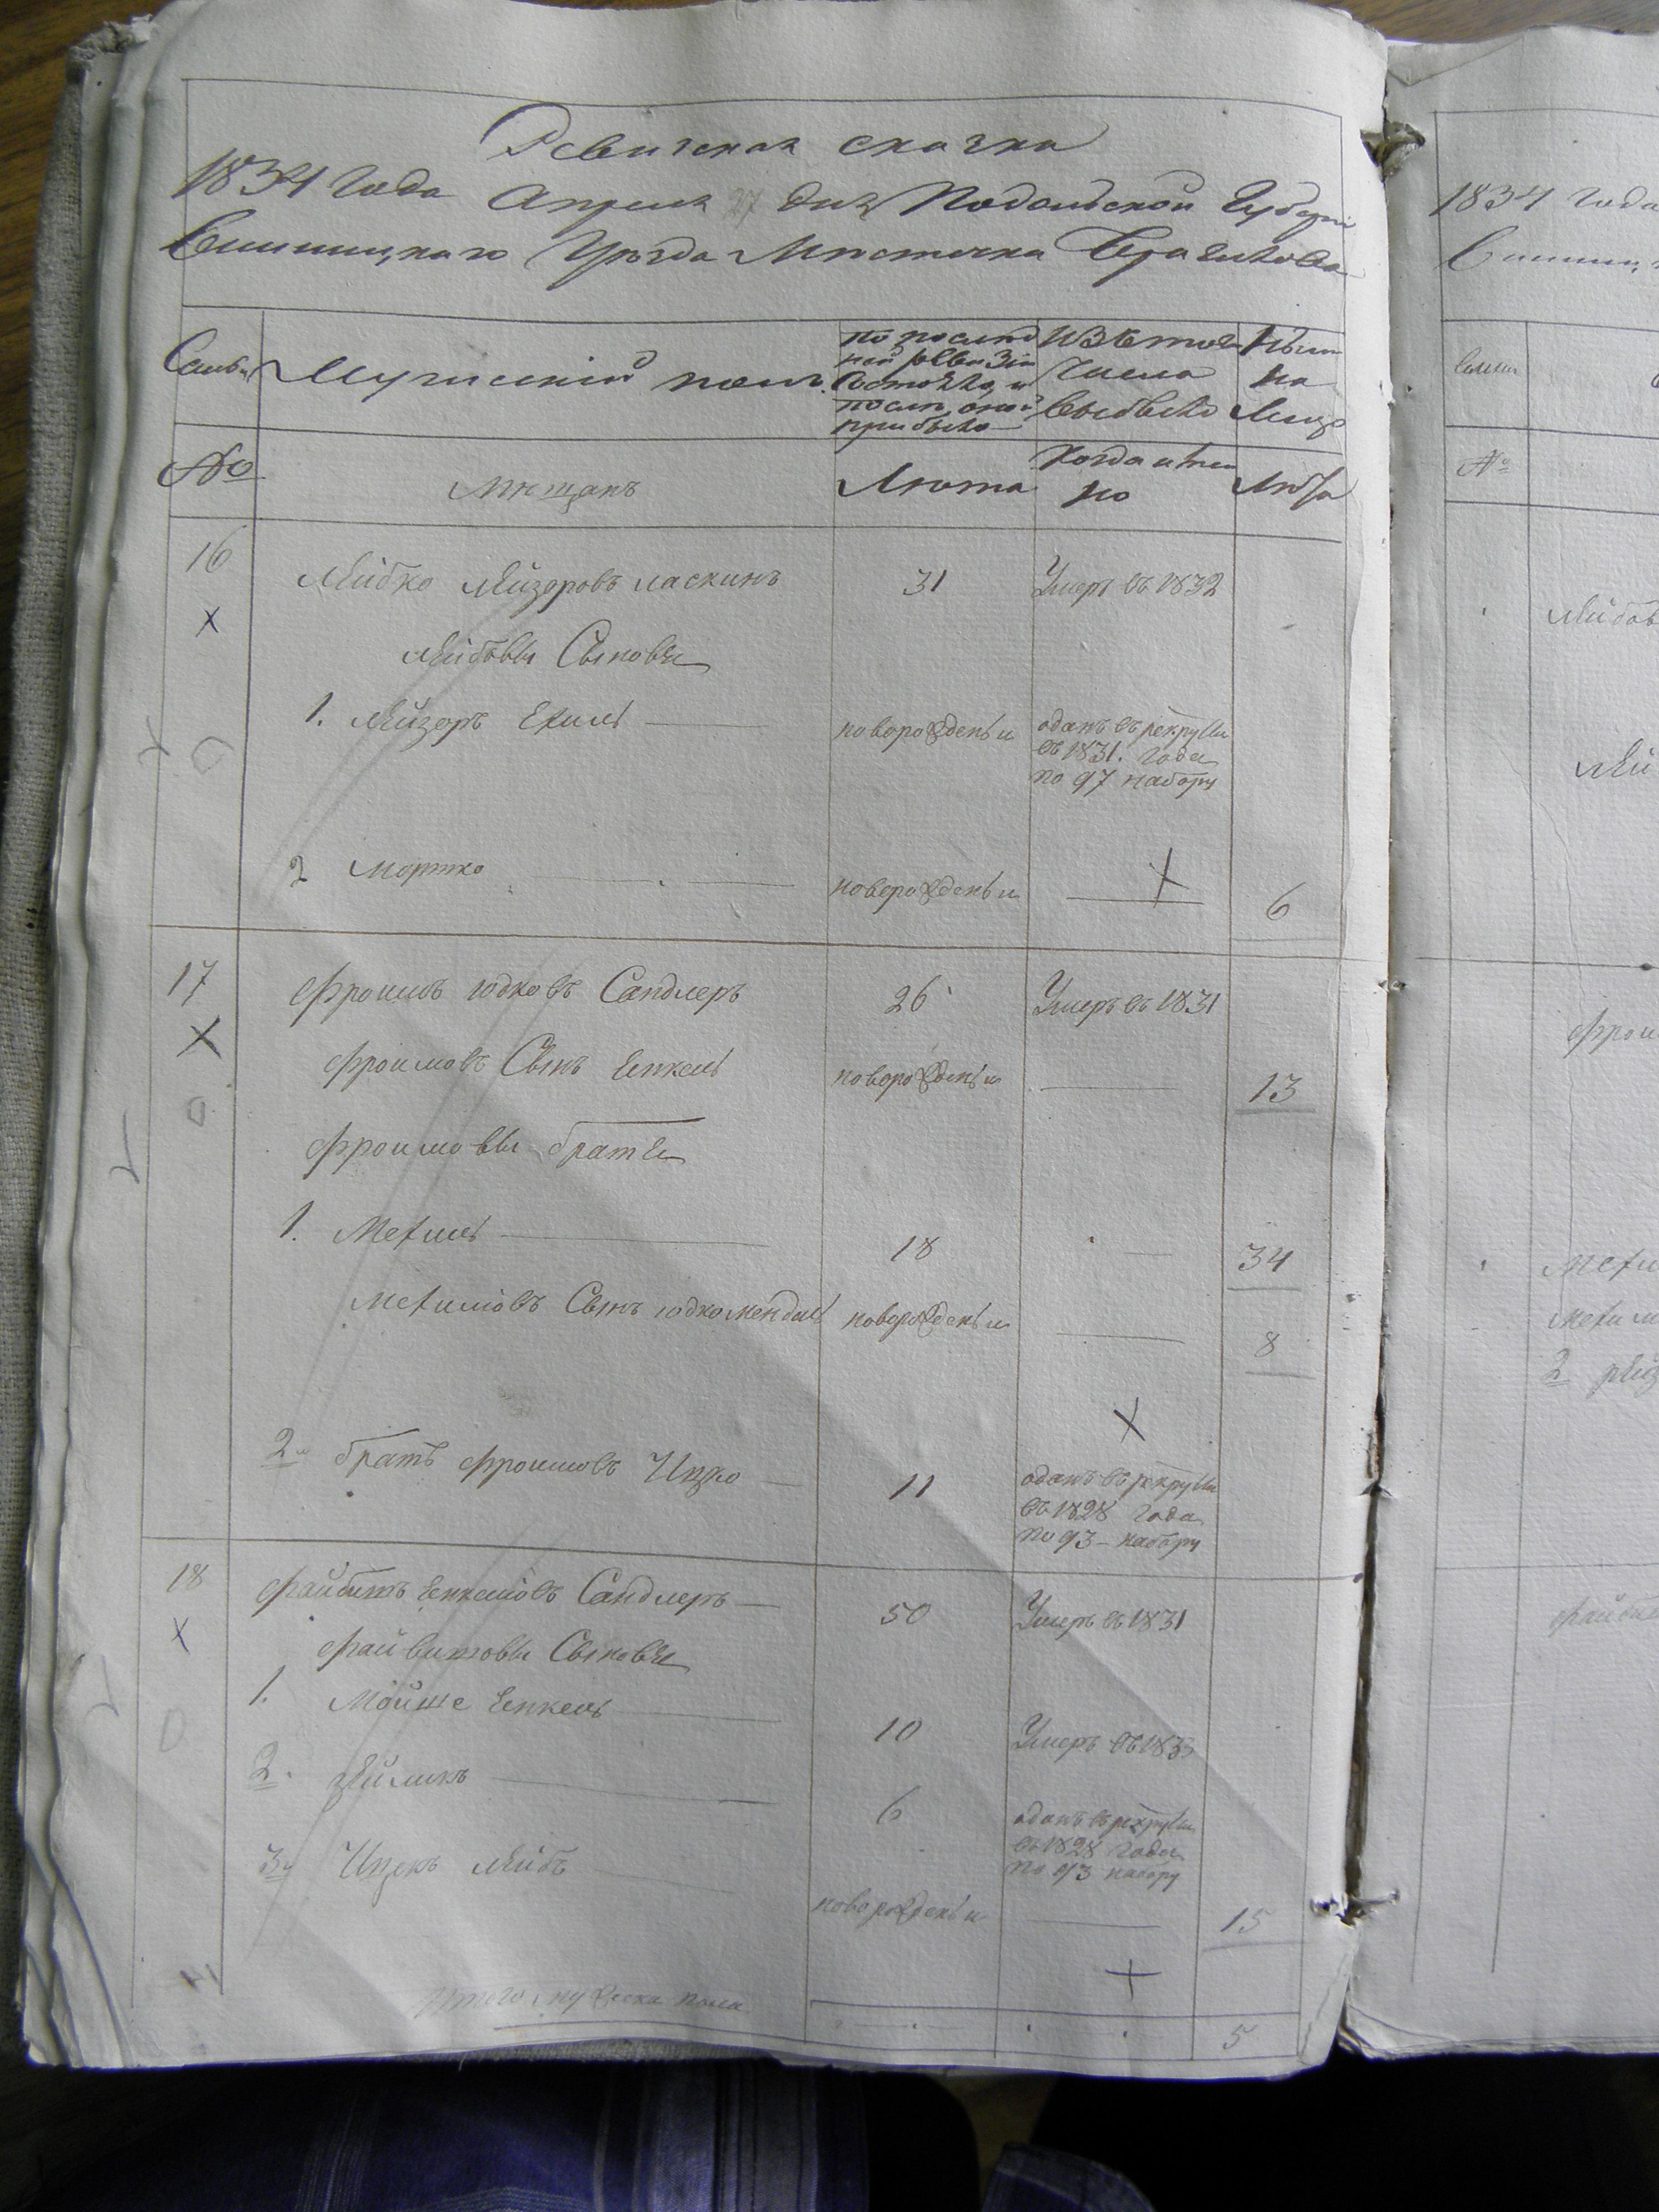 Ревизская сказка
1834 Года Апреля 27 дня Подольской Губерніи
Винницкаго Уѣзда Мѣстечка Браилова
Семьи
Мужескій полъ
по послѣд
ней ревизіи
состояло, и
послѣ оной
прибыло
Изъ того
числа
выбыло
Нынѣ
на
лицо
№
Мѣщанъ
Лѣта
Когда имен
но
Лѣта
16
Лейбко Лейзоровъ Ласкинъ
31
Умеръ въ 1832
Лейбовы Сыновья
1. Лейзоръ Ехиль
новорожденъи
оданъ въ рекруты
въ 1831. Года
по 97 набору
2 Мортко
новорожденъи
6
17
Фроимъ Юдковъ Сандлеръ
26
Умеръ въ 1831
Фроимовъ Сынъ Енкель
новорожденъи
13
Фроимовы братья
1. Мехиль
18
34
Мехилювъ Сынъ Юдкомендиль
новорожденъи
8
2й братъ Фроимовъ Ицко
11
оданъ въ рекруты
въ 1828 Года
по 93 набору
18
Файвишъ Енкелювъ Сандлеръ
50
Умеръ въ 1831
Файвишовы Сыновья
1. Мойше Енкель
10
Умеръ въ 1833
2. Зейликъ
6
оданъ въ рекруты
въ 1828 Года
по 93 набору
3й Ицекъ Лейбъ
новорожденъи
15
Итого мужеска пола
5
1834 Года
Семьи
№